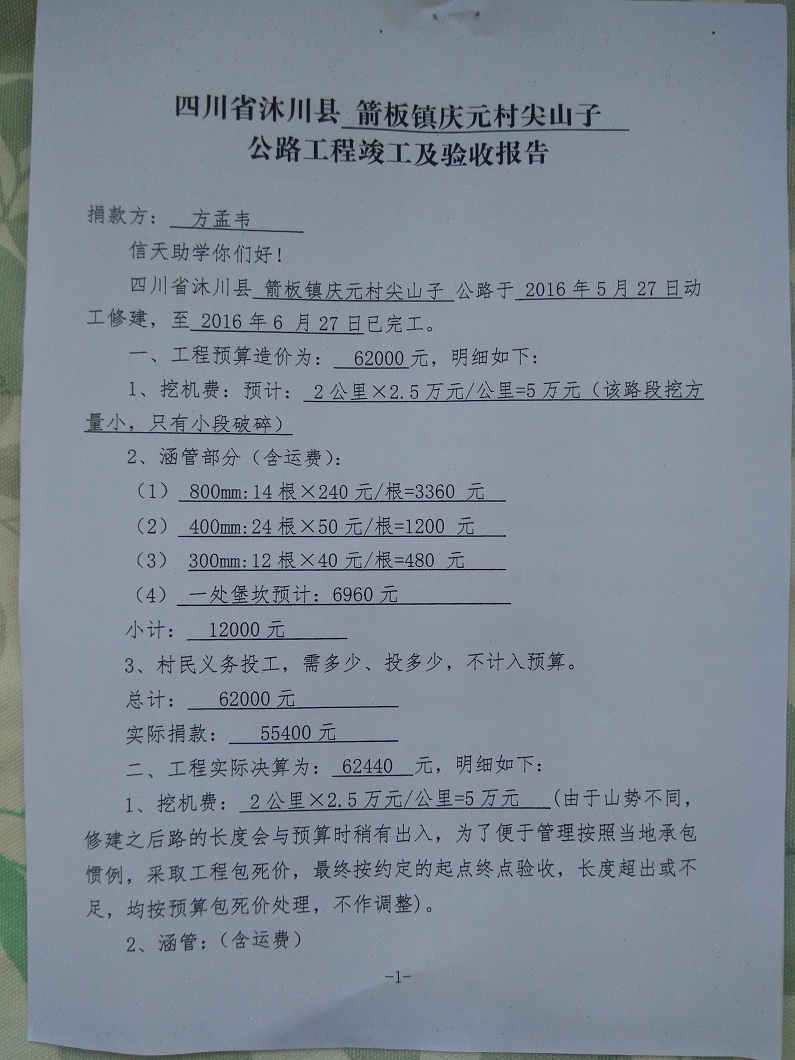 四川省沐川县 箭板镇庆元村尖山子
公路工程竣工及验收报告
捐款方： 方孟韦
信天助学你们好！
四川省沐川县 箭板镇庆元村尖山子 公路于 2016 年 5 月 27 日动
工修建，至 2016 年 6 月 27 日已完工。
一、工程预算造价为： 62000 元，明细如下：
1、挖机费：预计： 2 公里×2.5 万元/公里=5 万元（该路段挖方
量小，只有小段破碎）
2、涵管部分（含运费）：
（1） 800mm:14 根×240 元/根=3360 元
（2） 400mm:24 根×50 元/根=1200 元
（3） 300mm:12 根×40 元/根=480 元
（4） 一处堡坎预计：6960 元
小计： 12000 元
3、村民义务投工，需多少、投多少，不计入预算。
总计： 62000 元
实际捐款： 55400 元
二、工程实际决算为： 62440 元，明细如下：
1、挖机费： 2 公里×2.5 万元/公里=5 万元 (由于山势不同，
修建之后路的长度会与预算时稍有出入，为了便于管理按照当地承包
惯例，采取工程包死价，最终按约定的起点终点验收，长度超出或不
足，均按预算包死价处理，不作调整)。
2、涵管:（含运费）
-1-